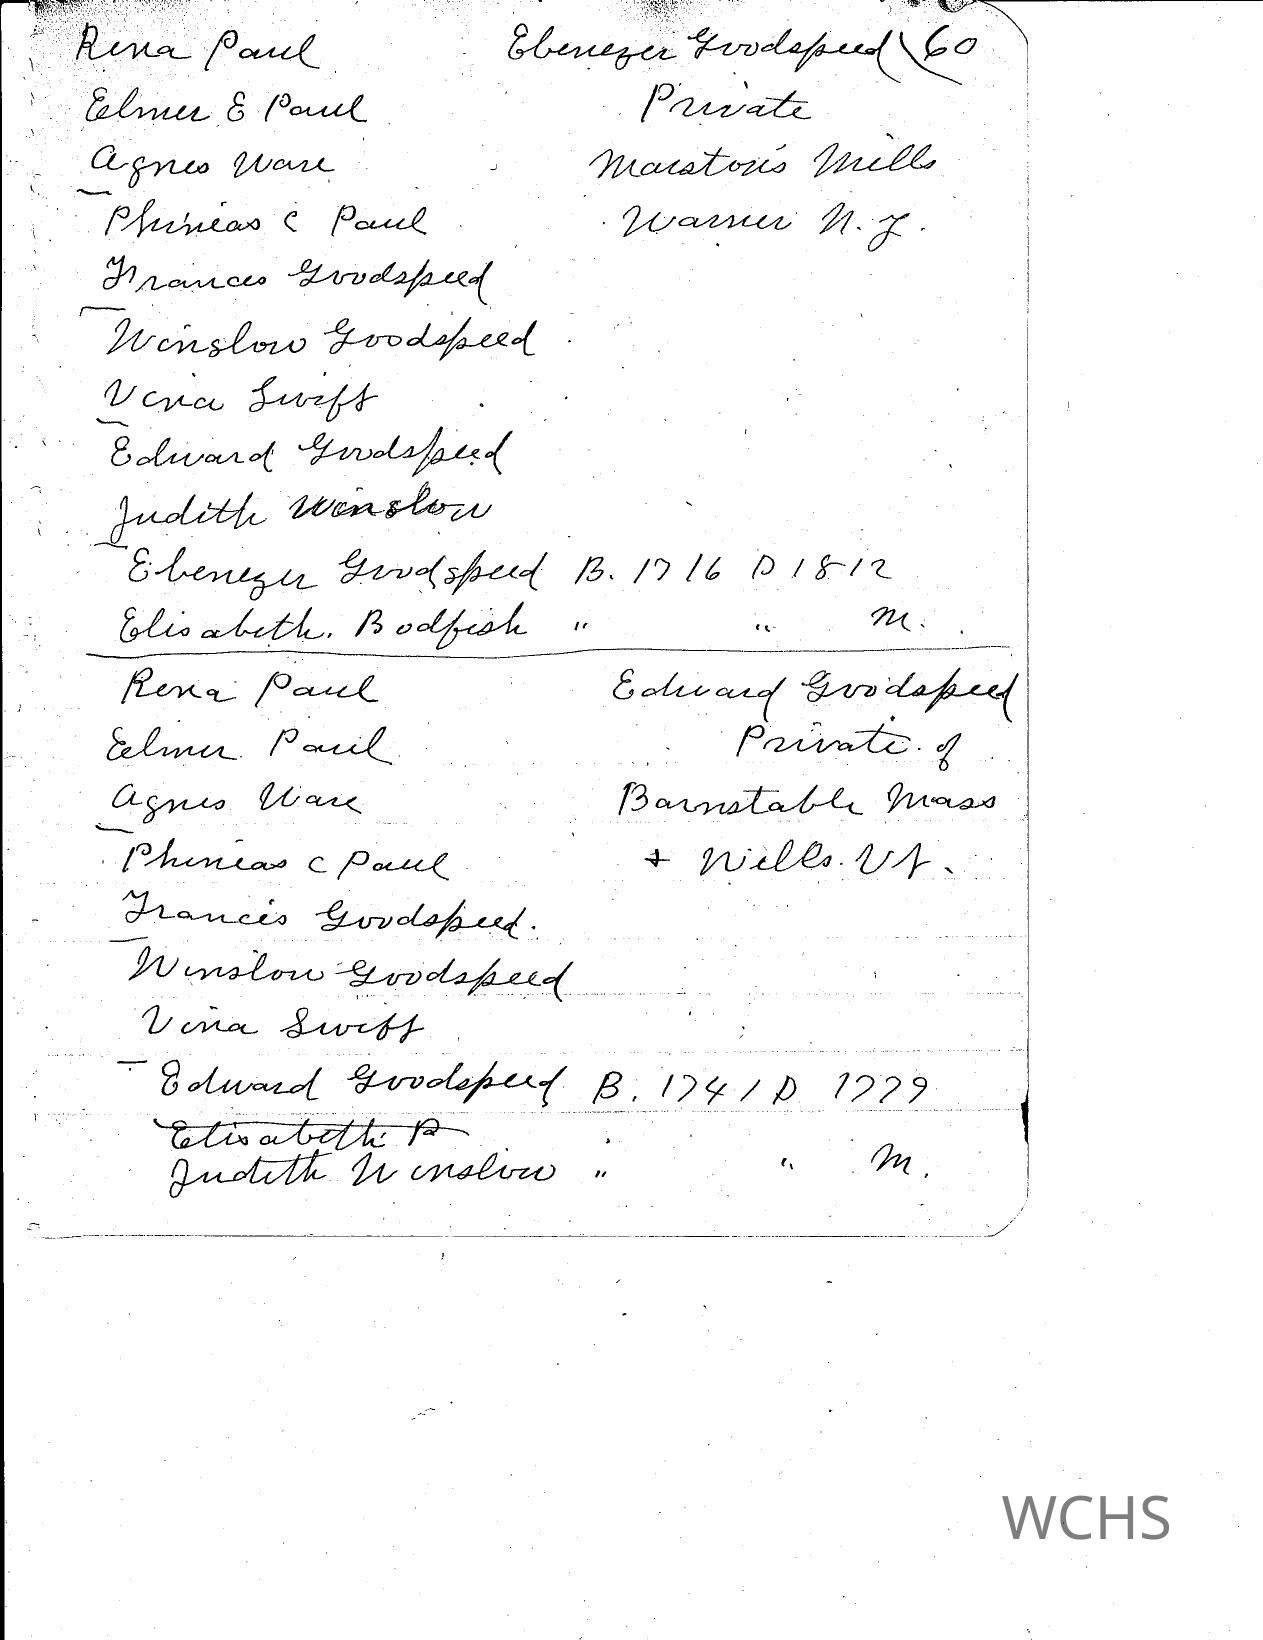 Rena Paul Ebenezer Goodspeed 60
Elmer E Paul Private
Agnes Ware Marston's Mills
Phineas C Paul Warner N.Y.
Frances Goodspeed
Winslow Goodspeed
Vina Swift
Edward Goodspeed
Judith Winslow
Ebenezer Goodspeed B. 1716 D 1812
Elisabeth. Bodfish " " M.
Rena Paul Edward Goodspeed
Elmer Paul Private of
Agnes Ware Barnstable Mass
Phineas C Paul + Wells. Vt.
Francis Goodspeed.
Winslow Goodspeed
Vina Swift
Edward Goodspeed B. 1741 D 1779
Elisabeth B
Judith Winslow " " M.
WCHS